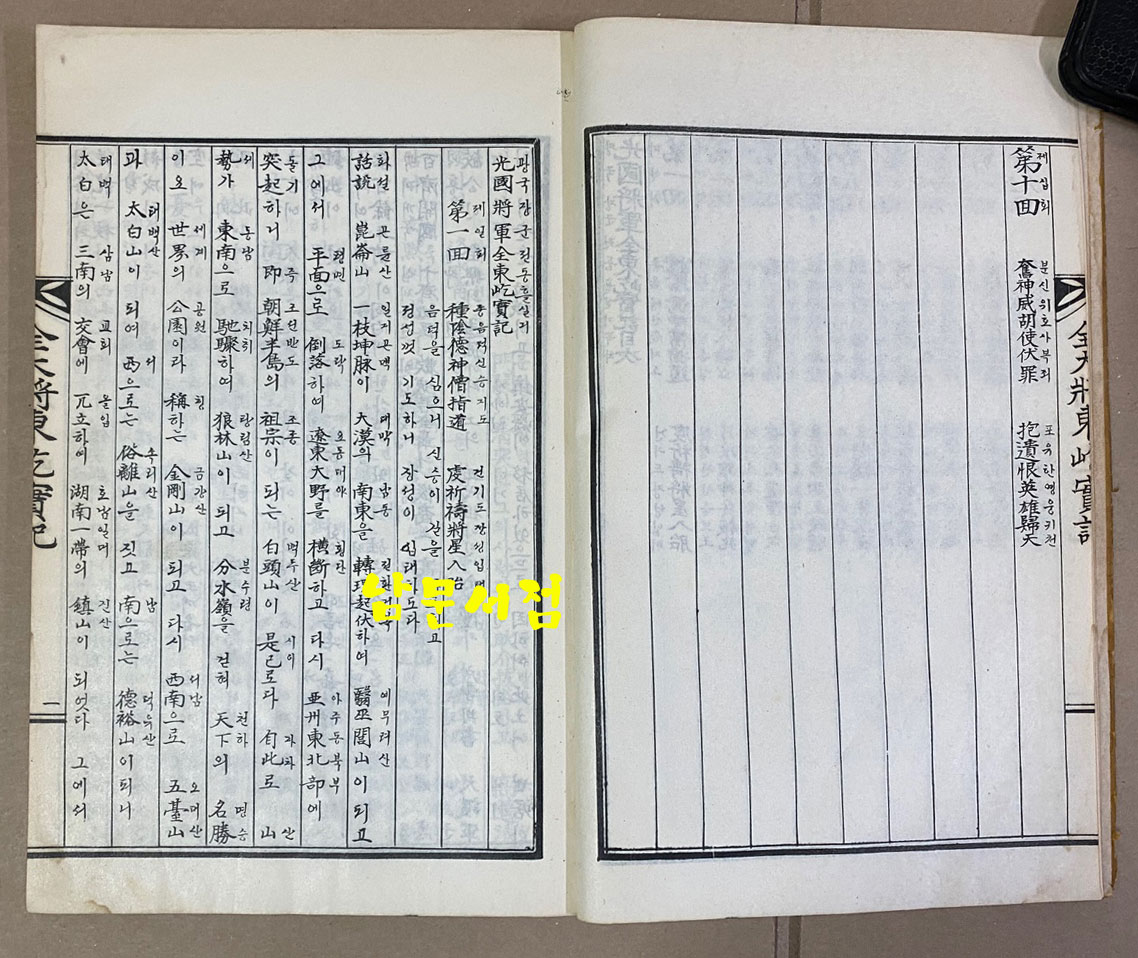 第十回 奮神威胡使伏罪 抱遺恨英雄歸天
제십회 분신위호사복죄 포유한영웅귀천
광국장군전동흘실기
光國將軍全東屹實記
제일회 종음덕신승지도 건기도장성입태
第一回 種陰德神僧指道 虔祈禱將星入胎
음덕을 심으니 신승이 길을
정성껏 기도하니 장성이 입태하도다
화설 곤륜산 일지곤맥 대막 남동 전환기복 예무려산
話說 崑崙山 一枝坤脉이 大漠의 南東을 轉環起伏하여 醫巫閭山이 되고
평면 도락 요동대야 횡단 아주동북부
그에서 平面으로 倒落하여 遼東大野를 橫斷하고 다시 亞州東北部에
돌기 즉 조선반도 조종 백두산 시이 자차 산
突起하거 即 朝鮮半島의 祖宗이 되는 白頭山이 是已로다 自此로 山
세 동남 치취 랑림산 분수령 천하 명승
勢가 東南으로 馳驟하여 狼林山이 되고 分水嶺을 건너 天下의 名勝
세계 공원 칭 금강산 서남 오대산
이오 世界의 公園이라 稱하는 金剛山이 되고 다시 西南으로 五臺山
태백산 서 속리산 남 덕유산
과 太白山이 되여 西으로는 俗離山을 짓고 南으로는 德裕山이 되니
태백 삼남 교회 올립 호남일대 진산
太白은 三南의 交會에 兀立하여 湖南一帶의 鎮山이 되엇다 그에서
一
남문서점